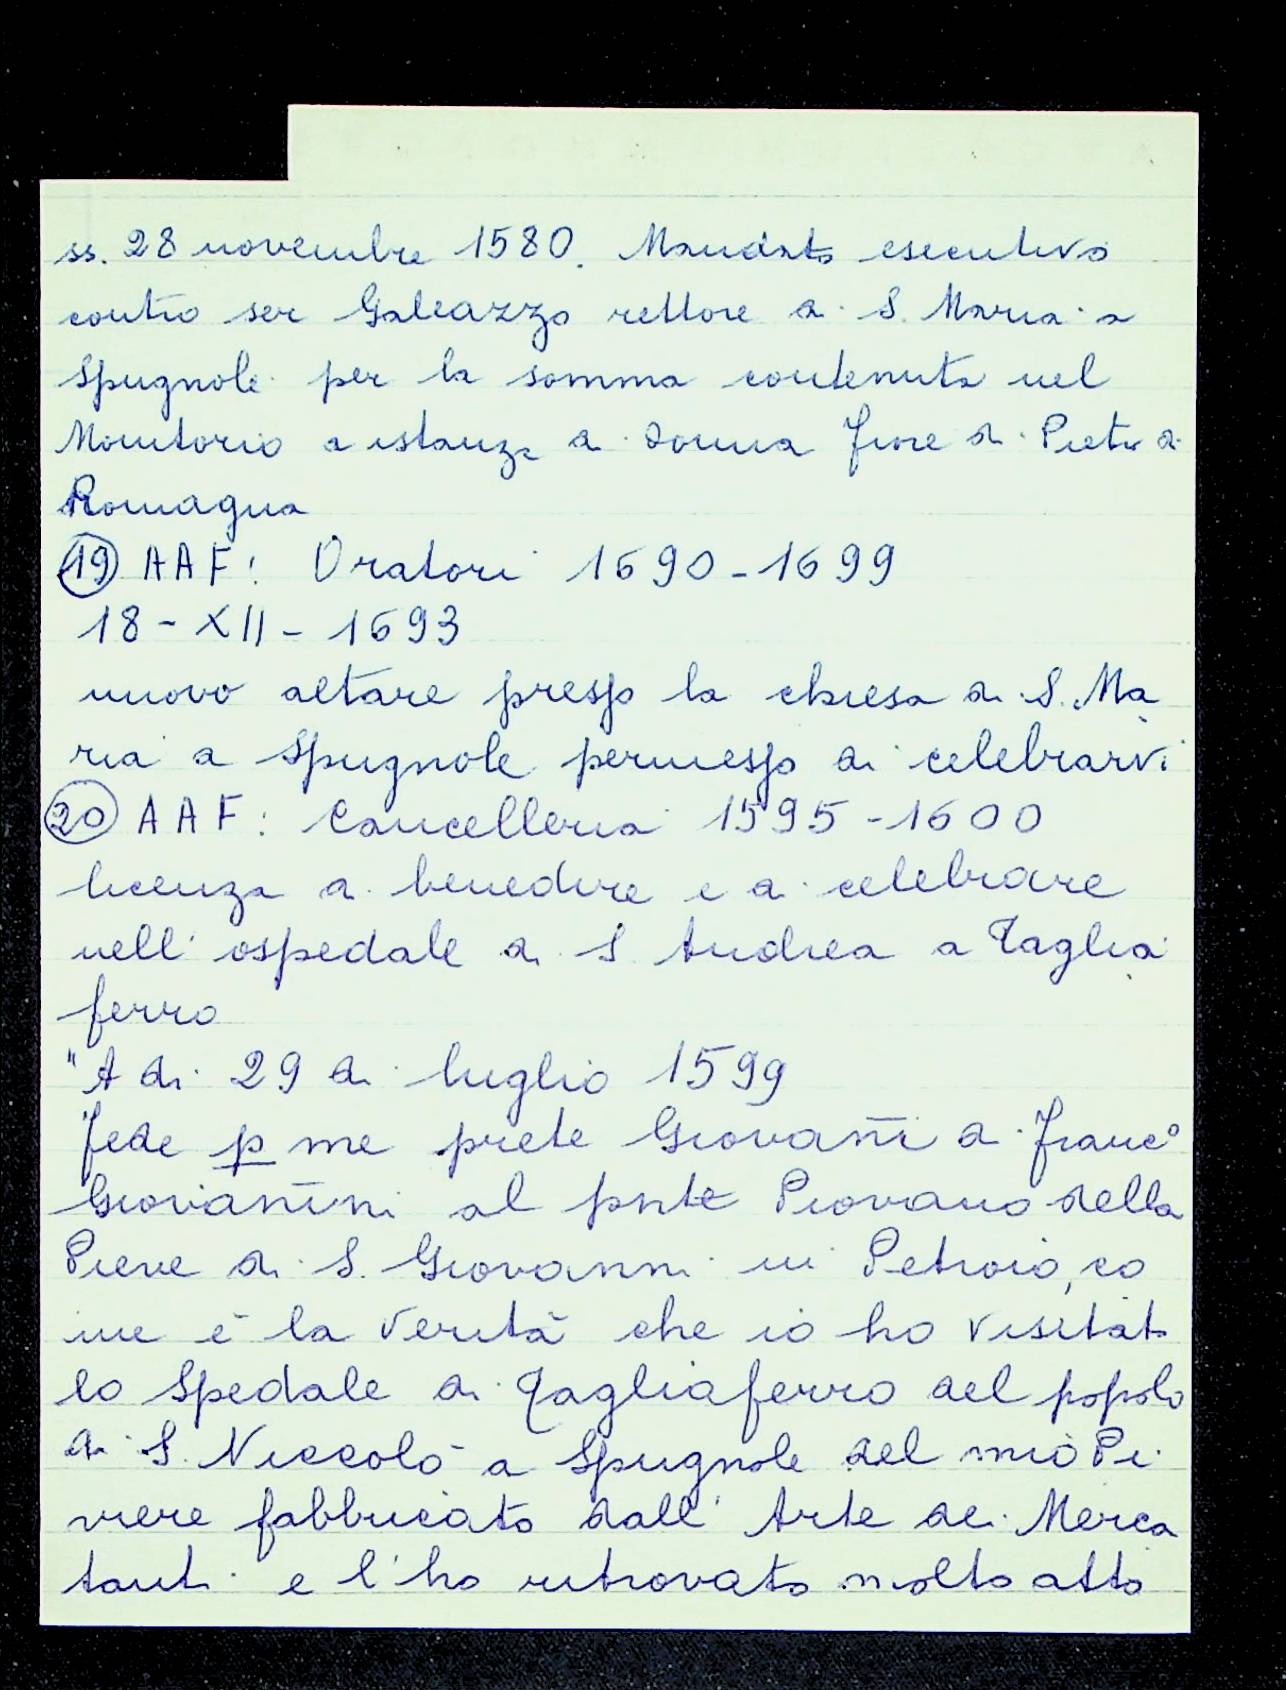 ss. 28 novembre 1580. Mandato esecutivo
contro ser Galeazzo rettore di S. Maria a
Spugnole per la somma contenuta nel
Monitorio a istanza di donna Fiore di Pietro di
Romagna
19 AAF: Oratori 1690-1699
18-XII-1693
nuovo altare presso la chiesa di S. Ma
ria a Spugnole permesso di celebrarvi
20 AAF: Cancelleria 1595-1600
licenza di benedire e di celebrare
nell'ospedale di S Andrea a Taglia
ferro
"A di 29 di luglio 1599
Fede p me prete Giovañi di Franc°
Giovañini al pnte Piovano della
Pieve di S. Giovanni in Petroio, co
me è la verità che io ho visitato
lo Spedale di Tagliaferro del popolo
di S. Niccolò a Spugnole del mio Pi
viere fabbricato dall'Arte dei Merca
tanti e l'ho ritrovato molto atto